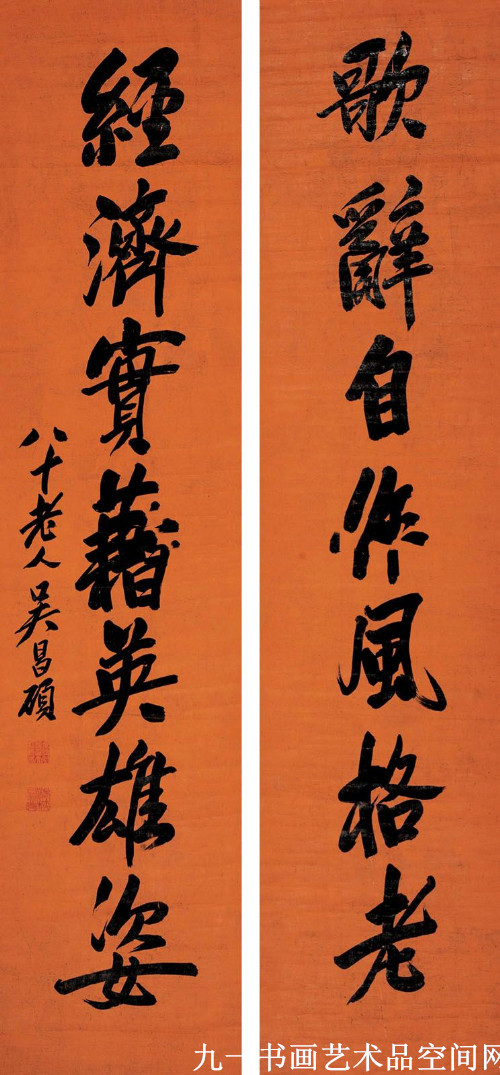 歌辭自作風格老
經濟實藉英雄姿
八十老人吴昌碩
九一书画艺术品空间网